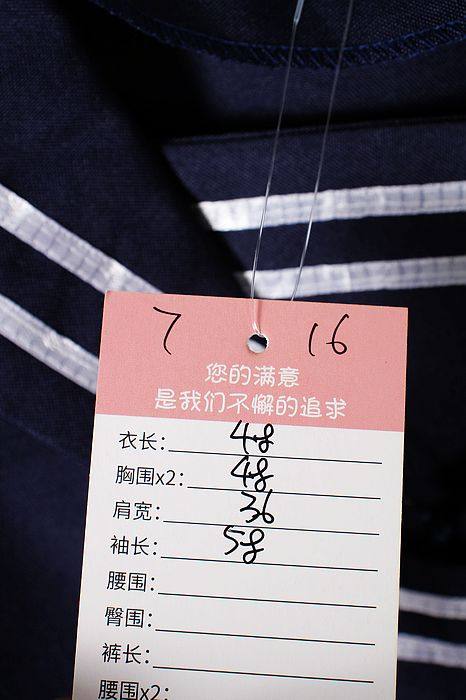 7 16
您的满意
是我们不懈的追求
衣长: 48
胸围x2: 48
肩宽: 36
袖长: 58
腰围:
臀围:
裤长:
腰围x2: